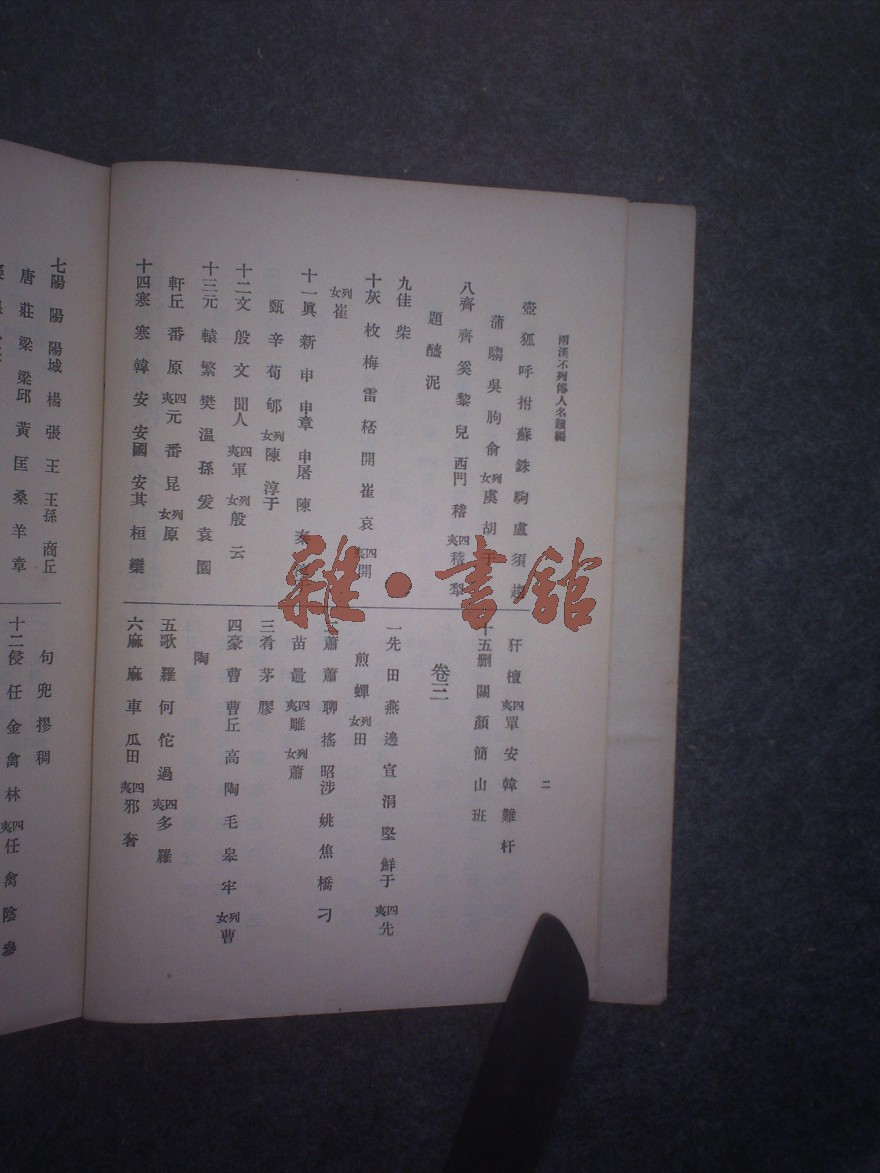 兩漢不列傳人名韻編
二
壺 狐 呼 拊 蘇 銖 駒 盧 須 趨
蒲 騶 吳 朐 俞 列女 虞 胡 于
八齊 齊 奚 黎 兒 西門 稽 四夷 稽 犁
題 醯 泥
九佳 柴
十灰 枚 梅 雷 桮 開 崔 哀 四夷 開
列女 崔
十一眞 新 申 申章 申屠 陳 秦
甄 辛 荀 郇 列女 陳 淳于
十二文 殷 文 聞人 四夷 軍 列女 殷 云
十三元 轅 繁 樊 溫 孫 爰 袁 園
軒丘 番 原 四夷 元 番 昆 列女 原
十四寒 寒 韓 安 安國 安其 桓 欒
犴 檀 四夷 單 安 韓 難 杆
十五删 關 顏 簡 山 班
卷三
一先 田 燕 邊 宣 涓 堅 鮮于 四夷 先
煎 蟬 列女 田
二蕭 蕭 聊 搖 昭涉 姚 焦 橋 刁
苗 鼂 四夷 雕 列女 蕭
三肴 茅 膠
四豪 曹 曹丘 高 陶 毛 皋 牢 列女 曹
陶
五歌 羅 何 佗 過 四夷 多 羅
六麻 麻 車 瓜田 四夷 邪 奢
七陽 陽 陽城 楊 張 王 王孫 商丘
唐 莊 梁 梁邱 黃 匡 桑 羊 章
句 兜 摎 稠
十二侵 任 金 禽 林 四夷 任 禽 陰 參
雜·書館